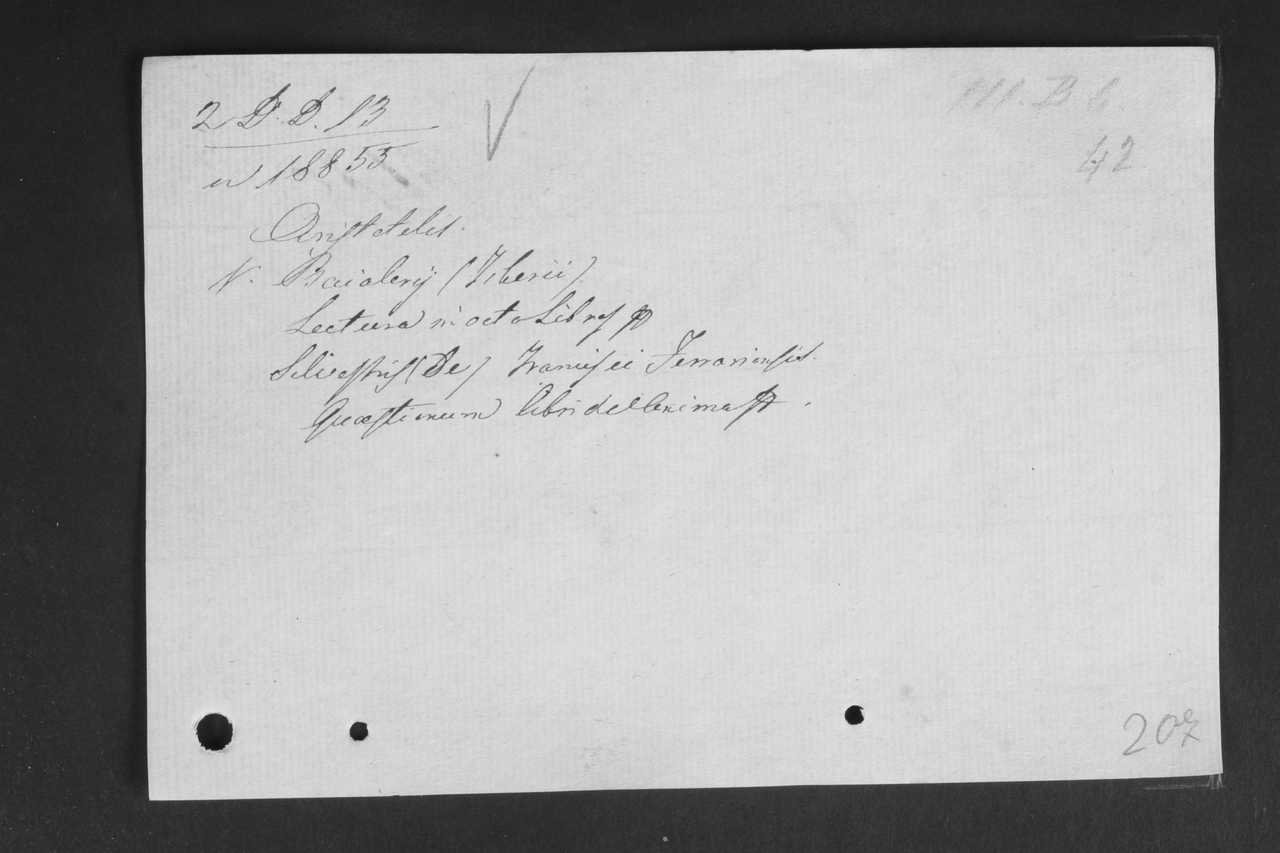 2 D. D. 13
n 18853
III. B 6.
42
Aristotelis.
V. Baialerij (Tiberii).
Lectura in octo Libros
Silvestris (De) Francisci Ferrariensis.
Quæstionum libri de Anima
207